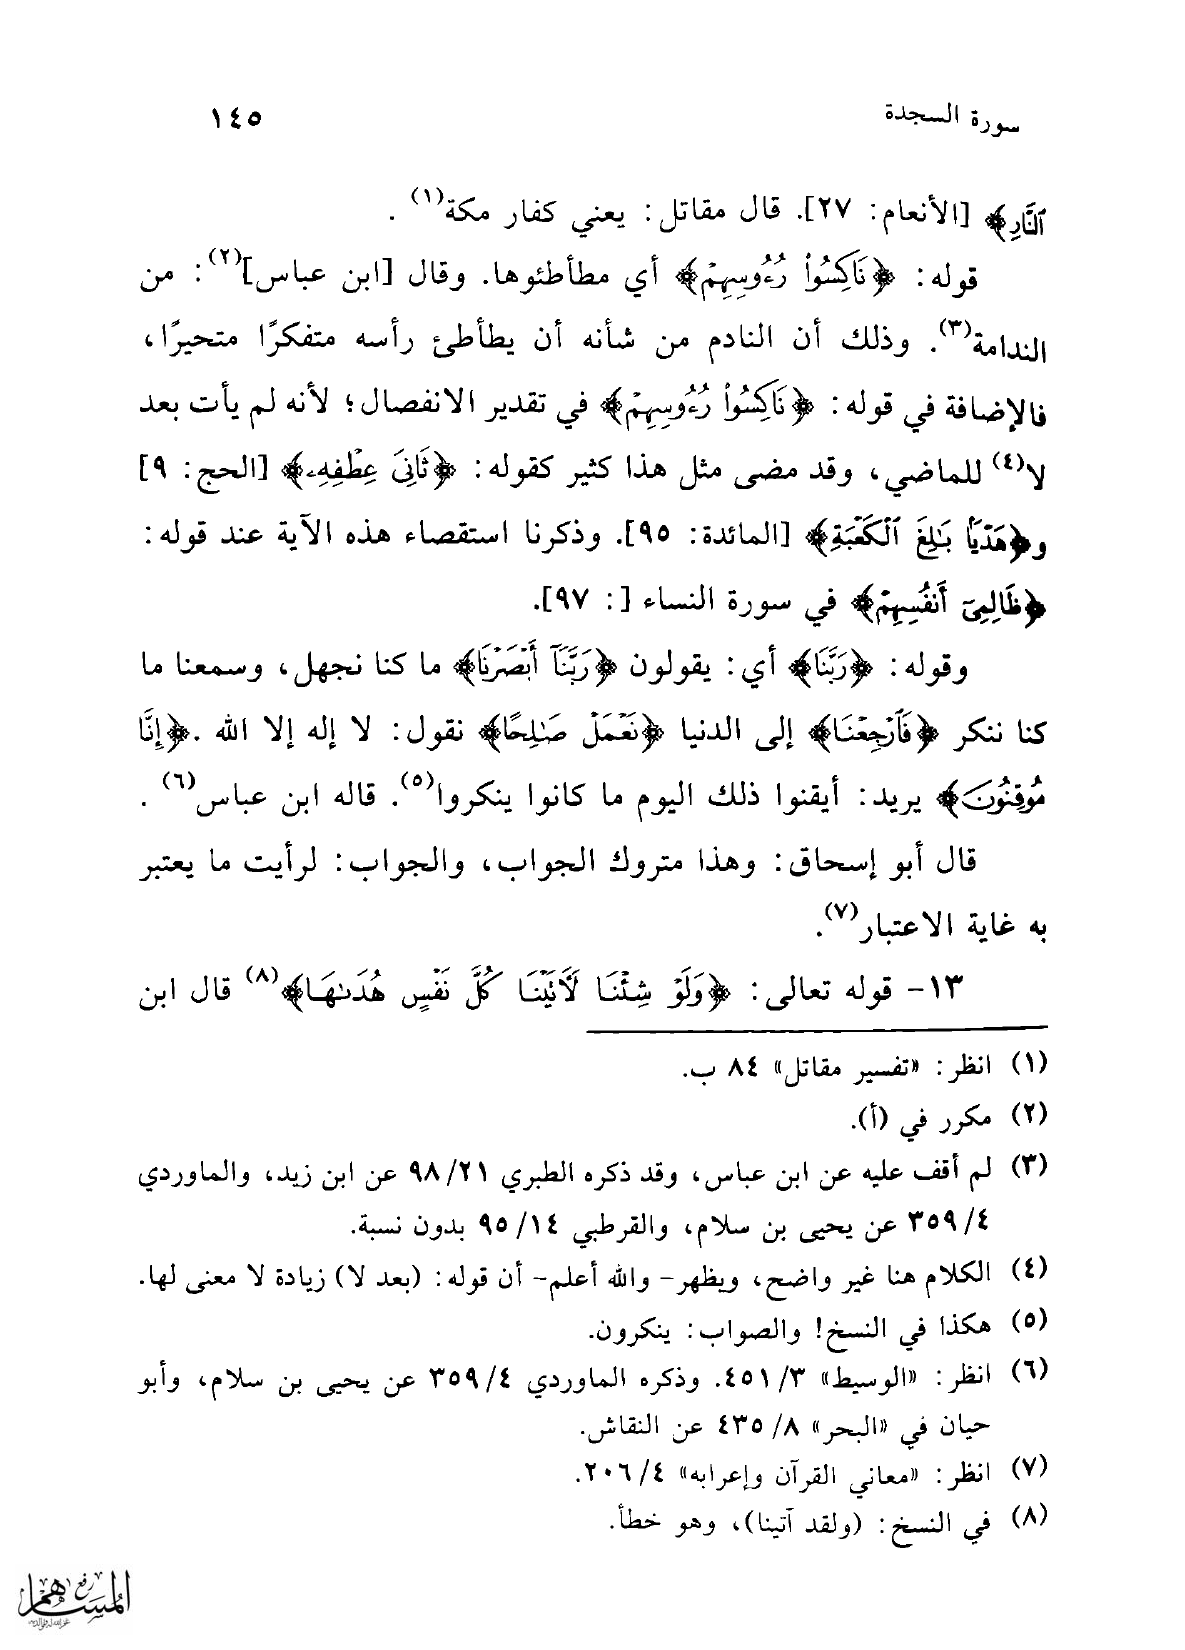 سورة السجدة
١٤٥
ٱلنَّارِ﴾ [الأنعام: ٢٧]. قال مقاتل: يعني كفار مكة(١) .
قوله: ﴿نَاكِسُوا۟ رُءُوسِهِمْ﴾ أي مطأطئوها. وقال [ابن عباس](٢): من
الندامة(٣). وذلك أن النادم من شأنه أن يطأطئ رأسه متفكرًا متحيرًا،
فالإضافة في قوله: ﴿نَاكِسُوا۟ رُءُوسِهِمْ﴾ في تقدير الانفصال؛ لأنه لم يأت بعد
لا(٤) للماضي، وقد مضى مثل هذا كثير كقوله: ﴿ثَانِىَ عِطْفِهِۦ﴾ [الحج: ٩]
و﴿هَدْيًۢا بَٰلِغَ ٱلْكَعْبَةِ﴾ [المائدة: ٩٥]. وذكرنا استقصاء هذه الآية عند قوله:
﴿ظَالِمِىٓ أَنفُسِهِمْ﴾ في سورة النساء [: ٩٧].
وقوله: ﴿رَبَّنَا﴾ أي: يقولون ﴿رَبَّنَآ أَبْصَرْنَا﴾ ما كنا نجهل، وسمعنا ما
كنا ننكر ﴿فَٱرْجِعْنَا﴾ إلى الدنيا ﴿نَعْمَلْ صَٰلِحًا﴾ نقول: لا إله إلا الله .﴿إِنَّا
مُوقِنُونَ﴾ يريد: أيقنوا ذلك اليوم ما كانوا ينكروا(٥). قاله ابن عباس(٦) .
قال أبو إسحاق: وهذا متروك الجواب، والجواب: لرأيت ما يعتبر
به غاية الاعتبار(٧).
١٣- قوله تعالى: ﴿وَلَوْ شِئْنَا لَءَاتَيْنَا كُلَّ نَفْسٍ هُدَىٰهَا﴾(٨) قال ابن
(١) انظر: «تفسير مقاتل» ٨٤ ب.
(٢) مكرر في (أ).
(٣) لم أقف عليه عن ابن عباس، وقد ذكره الطبري ٢١/ ٩٨ عن ابن زيد، والماوردي
٤/ ٣٥٩ عن يحيى بن سلام، والقرطبي ١٤/ ٩٥ بدون نسبة.
(٤) الكلام هنا غير واضح، ويظهر- والله أعلم- أن قوله: (بعد لا) زيادة لا معنى لها.
(٥) هكذا في النسخ! والصواب: ينكرون.
(٦) انظر: «الوسيط» ٣/ ٤٥١. وذكره الماوردي ٤/ ٣٥٩ عن يحيى بن سلام، وأبو
حيان في «البحر» ٨/ ٤٣٥ عن النقاش.
(٧) انظر: «معاني القرآن وإعرابه» ٤/ ٢٠٦.
(٨) في النسخ: (ولقد آتينا)، وهو خطأ.